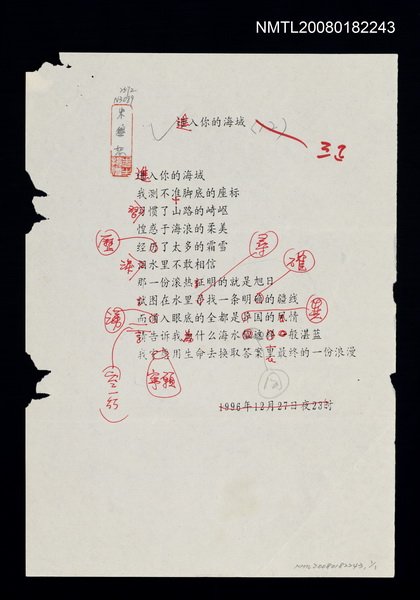 NMTL20080182243
進入你的海域
三芷
進入你的海域
我测不准脚底的座标
習惯了山路的崎岖
惶惑于海浪的柔美
经历了太多的霜雪
泪水里不敢相信
那一份滚热证明的就是旭日
试图在水里寻找一条明确的疆线
而涌入眼底的全都是异国的风情
请告诉我为什么海水这样一般湛蓝
我宁愿用生命去换取答案里最终的一份浪漫
1996年12月27日夜23时
歷
海
尋
礁
異
湧
空一行
寧願
裏
NMTL20080182243, 1/1